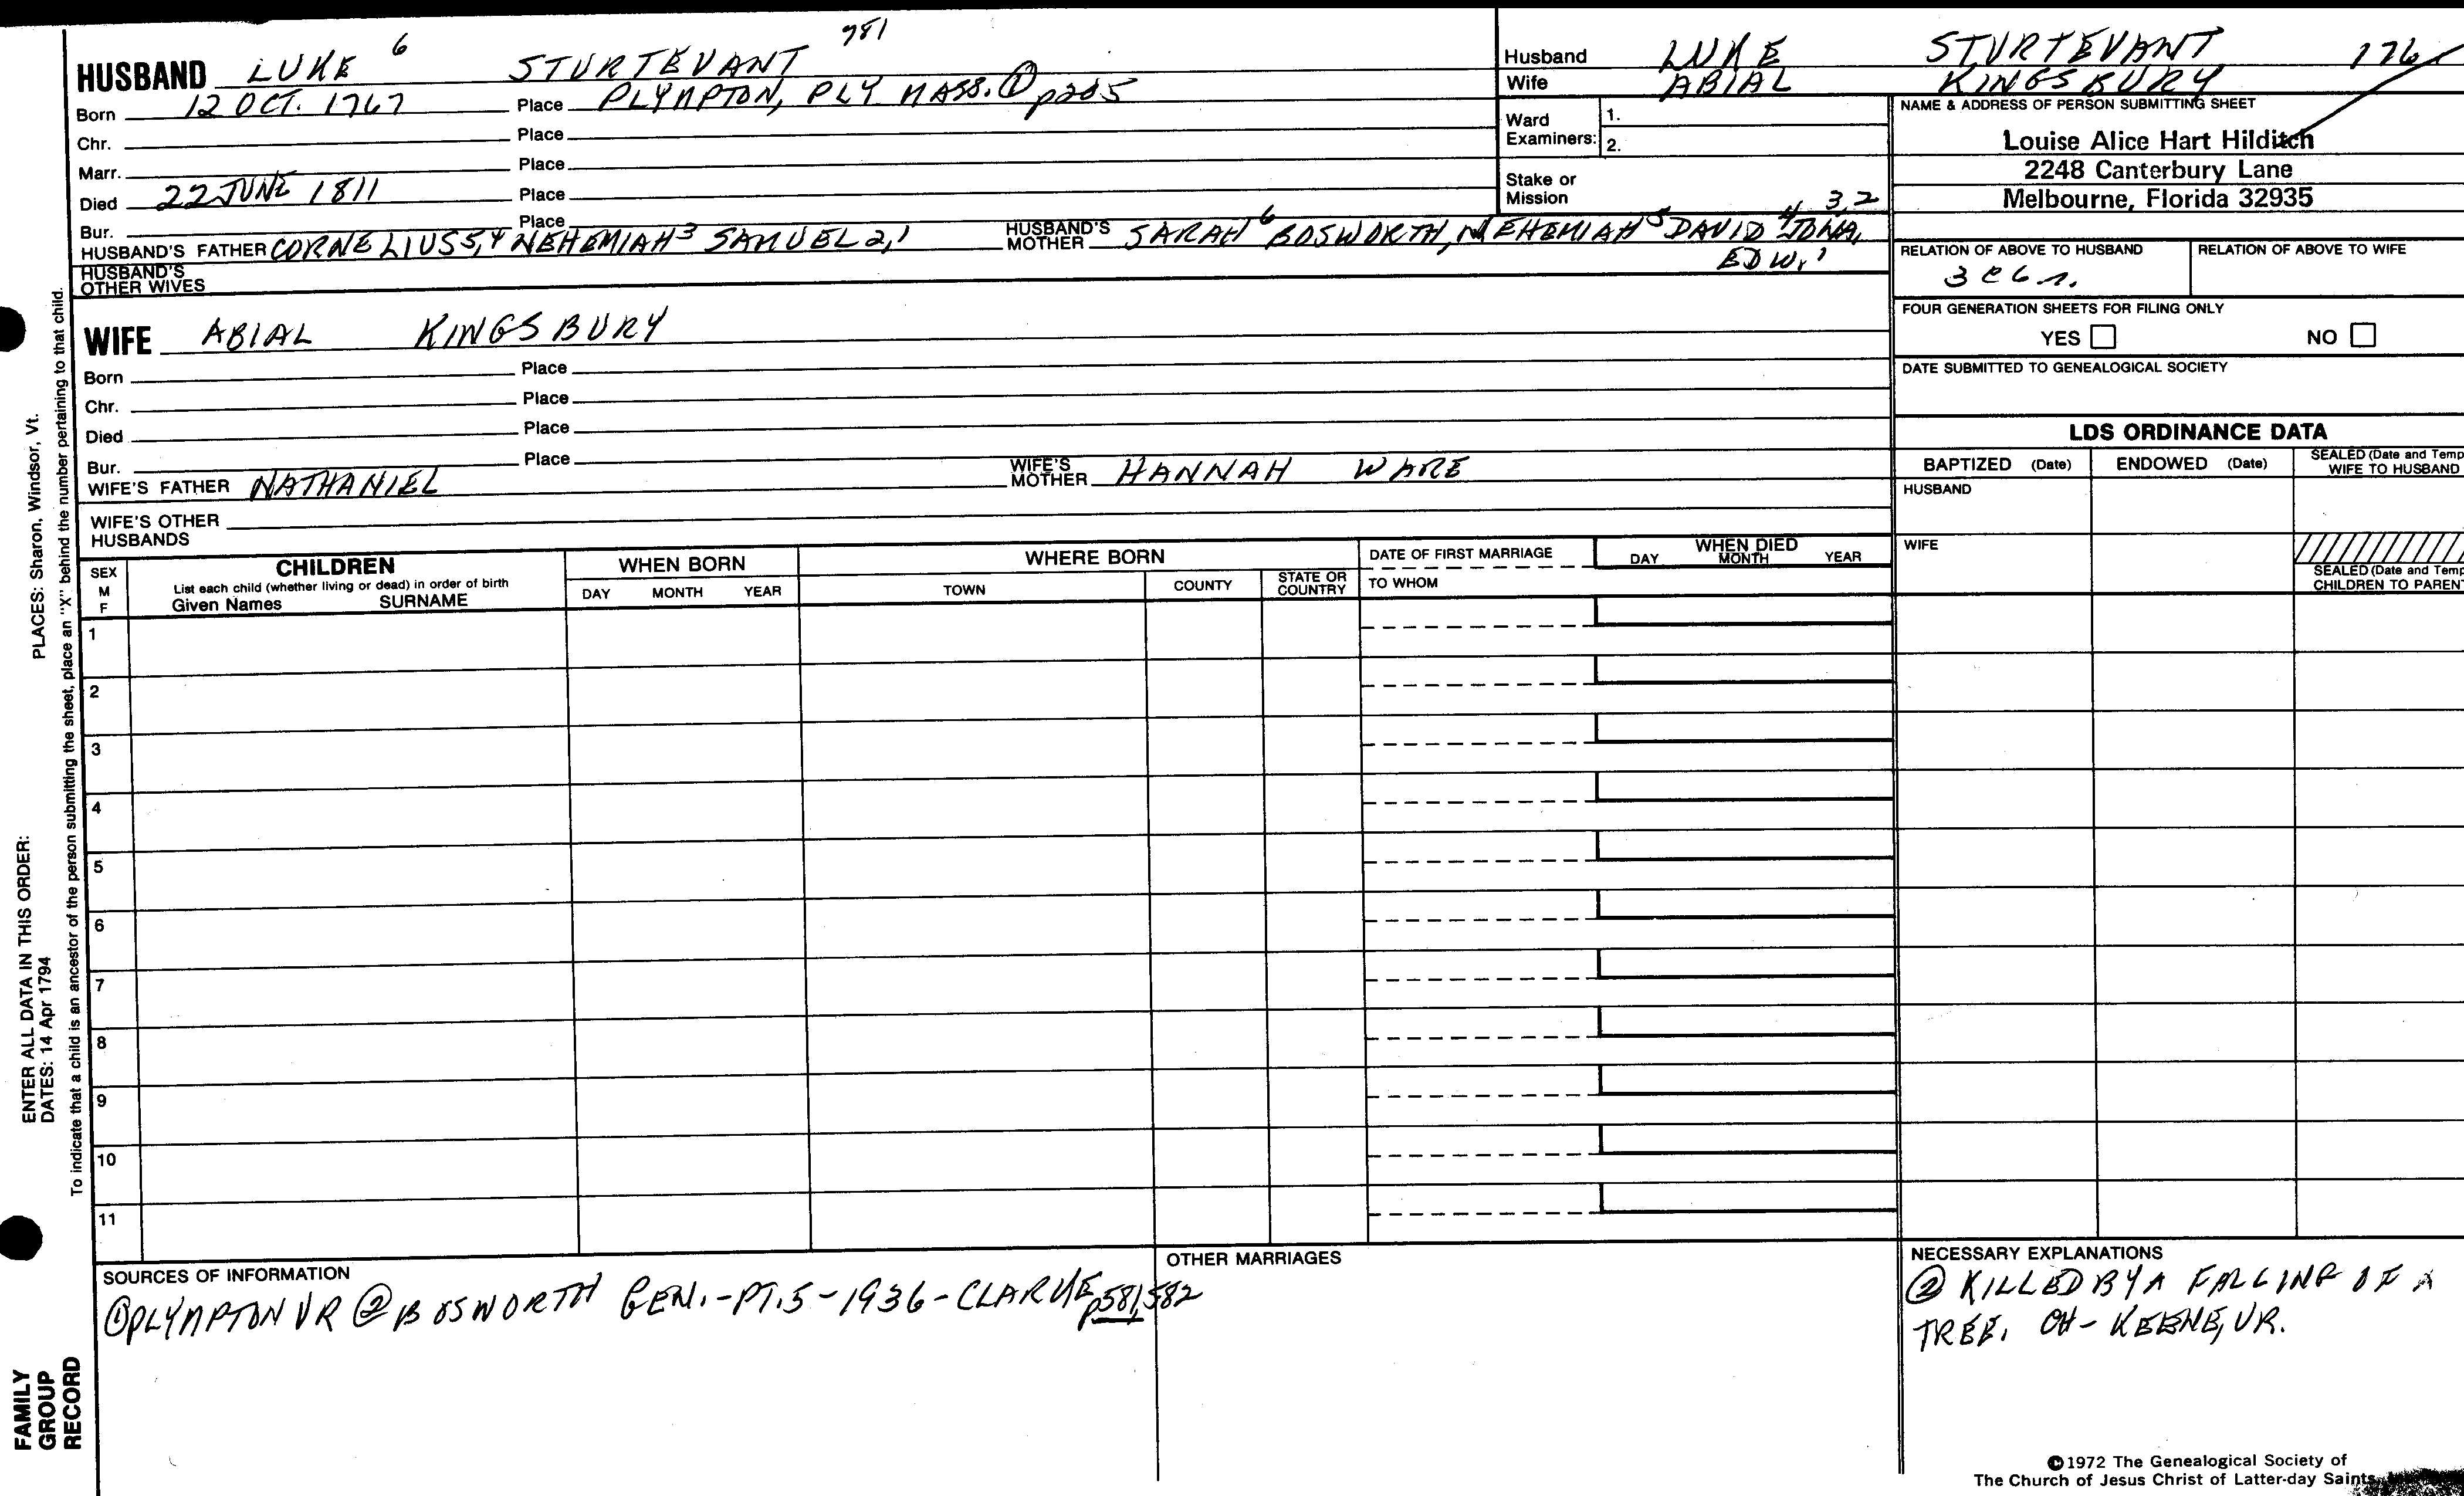 HUSBAND LUKE 6 STURTEVANT 981
Born 12 OCT. 1767 Place PLYMPTON, PLY MASS. ① p205
Chr. Place
Marr. Place
Died 22 JUNE 1811 Place
Bur. Place
HUSBAND'S FATHER CORNELIUS 5,4 NEHEMIAH 3 SAMUEL 2,1 HUSBAND'S MOTHER SARAH 6 BOSWORTH, NEHEMIAH 5 DAVID 4 JONA, 3,2
EDW, 1
HUSBAND'S OTHER WIVES
WIFE ABIAL KINGSBURY
Born Place
Chr. Place
Died Place
Bur. Place
WIFE'S FATHER NATHANIEL WIFE'S MOTHER HANNAH WARE
WIFE'S OTHER HUSBANDS
Husband LUKE STURTEVANT 176
Wife ABIAL KINGSBURY
Ward Examiners: 1.
2.
Stake or Mission
NAME & ADDRESS OF PERSON SUBMITTING SHEET
Louise Alice Hart Hilditch
2248 Canterbury Lane
Melbourne, Florida 32935
RELATION OF ABOVE TO HUSBAND RELATION OF ABOVE TO WIFE
3 c 6 r.
FOUR GENERATION SHEETS FOR FILING ONLY
YES NO
DATE SUBMITTED TO GENEALOGICAL SOCIETY
LDS ORDINANCE DATA
BAPTIZED (Date) ENDOWED (Date) SEALED (Date and Temp
WIFE TO HUSBAND
HUSBAND
WIFE
SEALED (Date and Temp
CHILDREN TO PARENT
SEX M F
CHILDREN
List each child (whether living or dead) in order of birth
Given Names SURNAME
WHEN BORN
DAY MONTH YEAR
WHERE BORN
TOWN COUNTY STATE OR COUNTRY
DATE OF FIRST MARRIAGE
TO WHOM
WHEN DIED
DAY MONTH YEAR
1
2
3
4
5
6
7
8
9
10
11
SOURCES OF INFORMATION
① PLYMPTON VR ② BOSWORTH GEN.-PT.5-1936-CLARKE p581,582
OTHER MARRIAGES
NECESSARY EXPLANATIONS
② KILLED BY A FALLING OF A
TREE. CH- KEENE, VR.
©1972 The Genealogical Society of
The Church of Jesus Christ of Latter-day Saints
PLACES: Sharon, Windsor, Vt.
ENTER ALL DATA IN THIS ORDER:
DATES: 14 Apr 1794
To indicate that a child is an ancestor of the person submitting the sheet, place an "X" behind the number pertaining to that child.
FAMILY
GROUP
RECORD